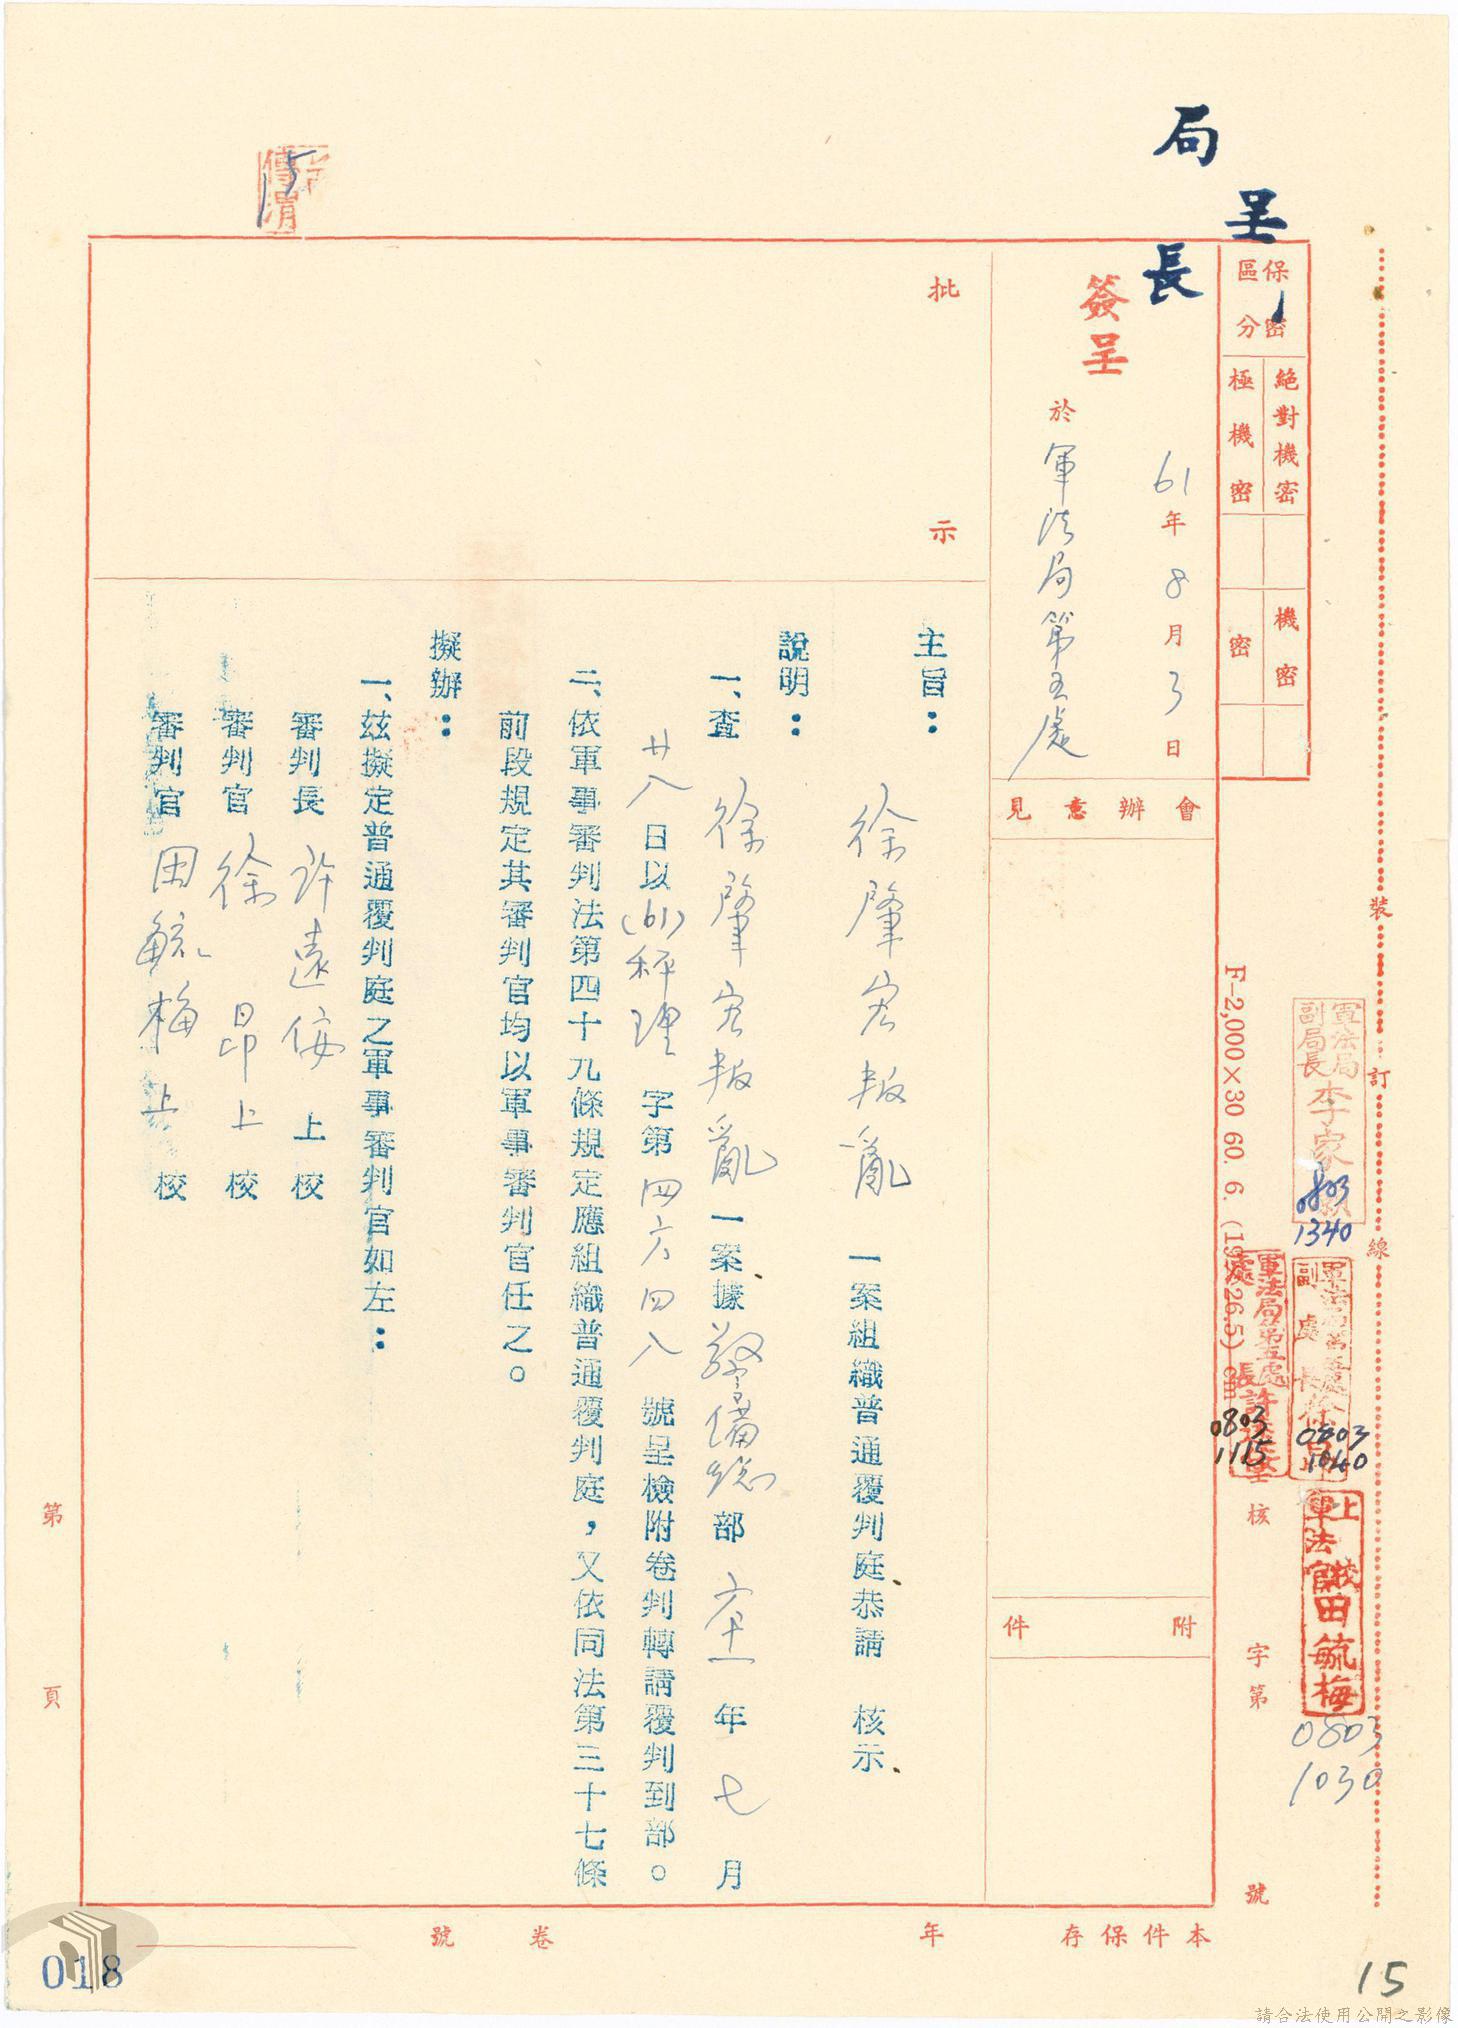 呈
局長
保密區分
絕對機密
極機密
機密
密
簽呈
61年8月3日
於軍法局第五處
會辦意見
附件
批示
主旨：徐肇宏叛亂一案組織普通覆判庭恭請 核示
說明：
一、查徐肇宏叛亂一案據警備總部六十一年七月
廿八日以(61)秤理字第四六四八號呈檢附卷判轉請覆判到部。
二、依軍事審判法第四十九條規定應組織普通覆判庭，又依同法第三十七條
前段規定其審判官均以軍事審判官任之。
擬辦：
一、茲擬定普通覆判庭之軍事審判官如左：
審判長 許遠俊 上校
審判官 徐昂 上校
審判官 田毓梅 上校
裝
訂
線
F-2,000×30 60. 6. (19×26.5) cm
軍法局副局長李家
0803
1340
軍法局第五處副處長徐
0803
1040
軍法局第五處處長許
0803
1115
軍法官田毓梅
0803
1030
核
字第
號
第 頁
本件保存 年
卷 號
018
15
請合法使用公開之影像